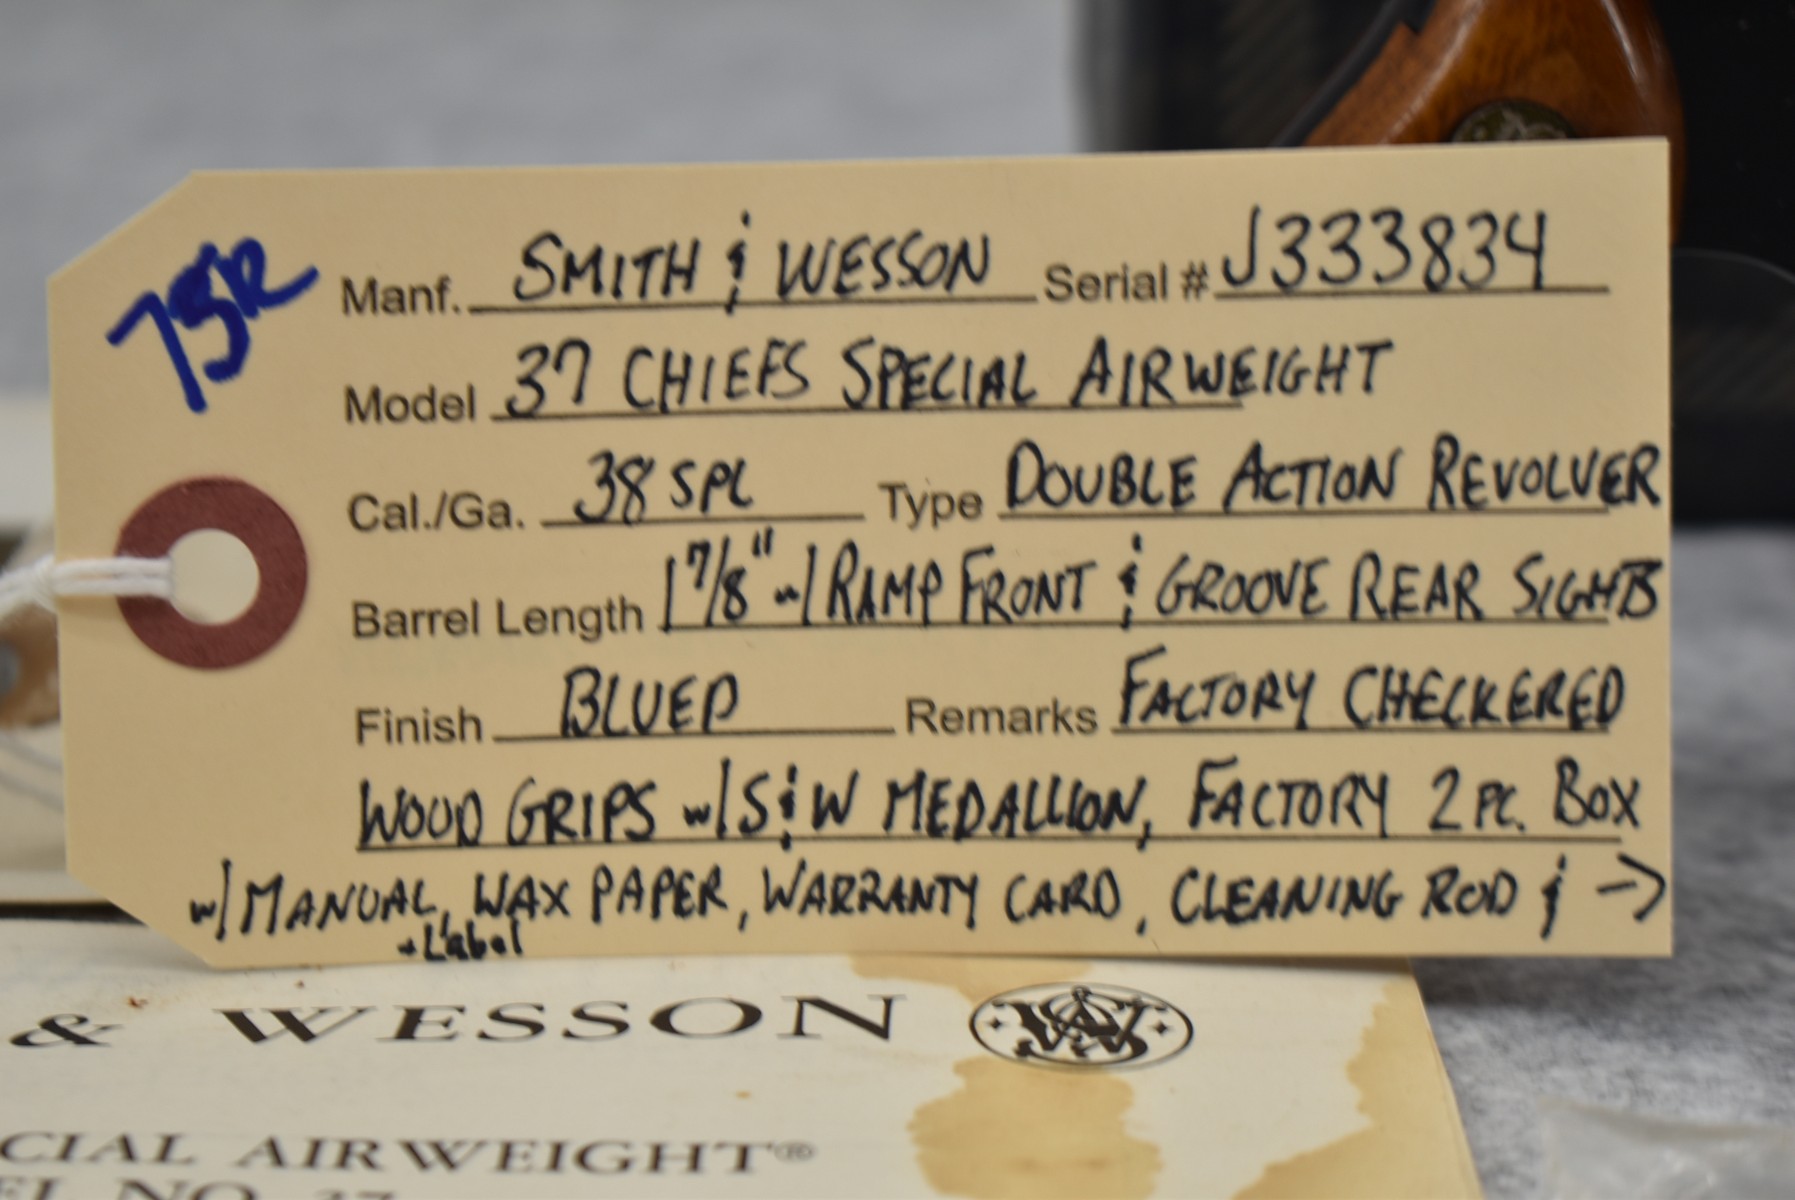 75R
Manf. SMITH & WESSON Serial # J333834
Model 37 CHIEFS SPECIAL AIRWEIGHT
Cal./Ga. 38 SPL Type DOUBLE ACTION REVOLVER
Barrel Length 1 7/8" w/ RAMP FRONT & GROOVE REAR SIGHTS
Finish BLUED Remarks FACTORY CHECKERED
WOOD GRIPS w/ S&W MEDALLION, FACTORY 2 PC. BOX
w/ MANUAL, WAX PAPER, WARRANTY CARD, CLEANING ROD & →
+ Label
& WESSON
CIAL AIRWEIGHT®
EL NO. 37